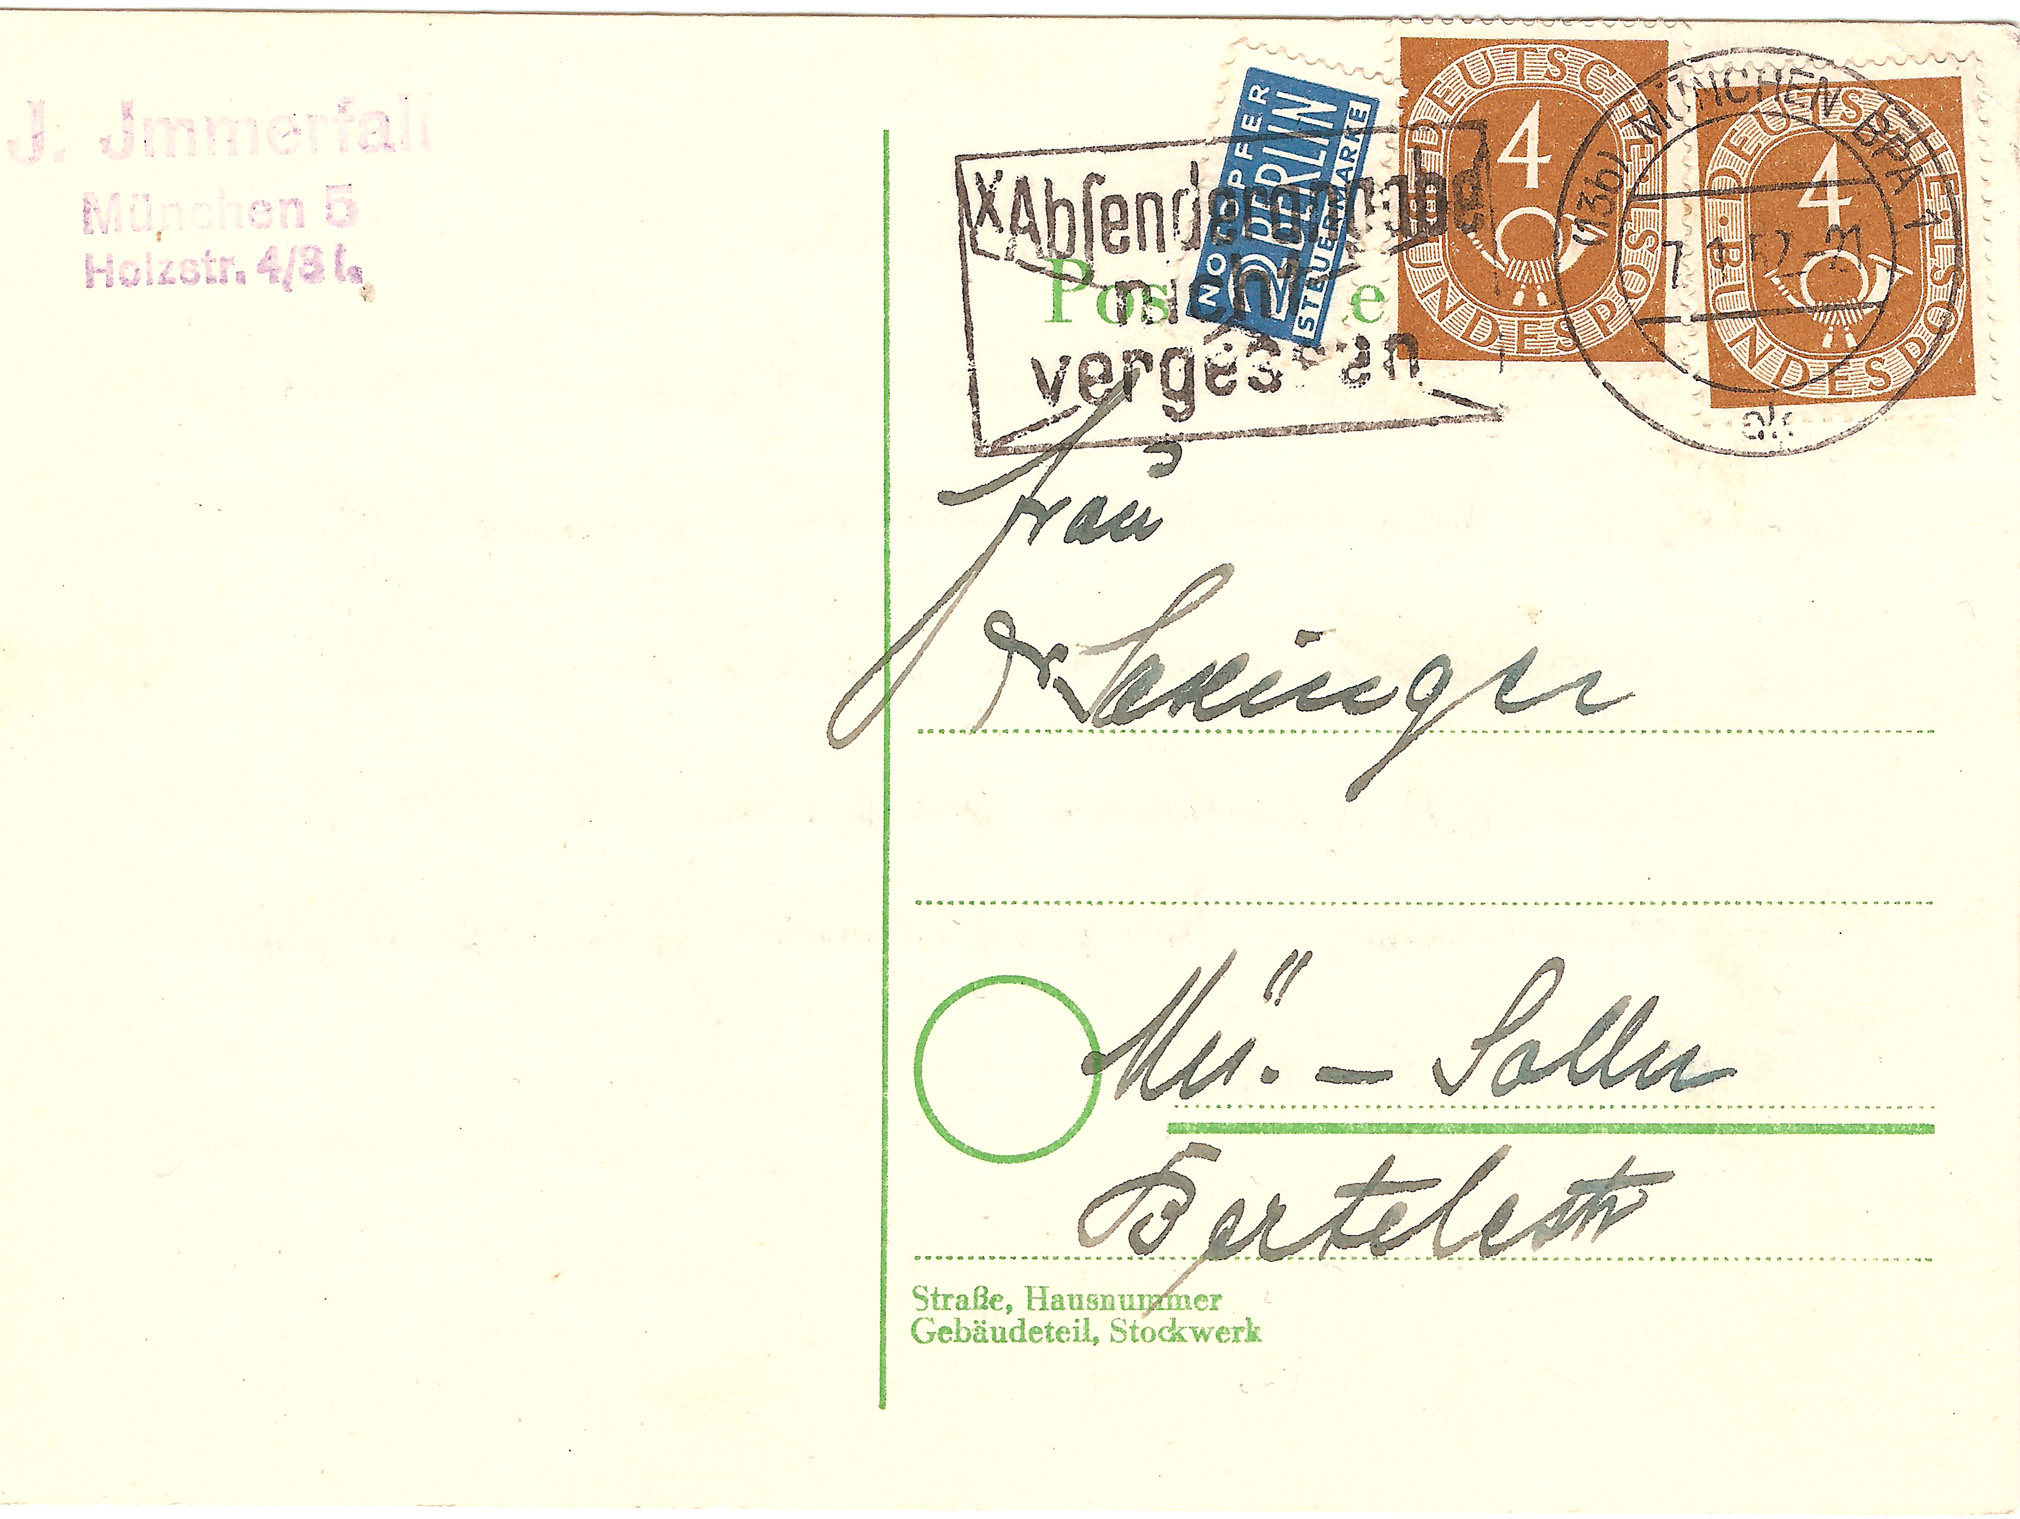 J. Jmmerfall
München 5
Holzstr. 4/3 l.
NOTOPFER
2 BERLIN
STEUERMARKE
DEUTSCHE BUNDESPOST
4
DEUTSCHE BUNDESPOST
4
(13b) MÜNCHEN BPA 1
52-21
ak
Absenderangabe
nicht
vergessen
Frau
Dr. Sexinger
Mü. - Solln
Bertelestr
Straße, Hausnummer
Gebäudeteil, Stockwerk